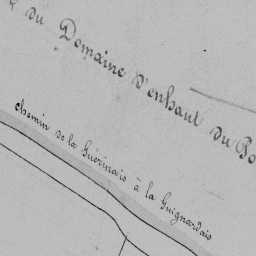 du Domaine d'enhaut du
chemin de la Guérinais à la Guignardais